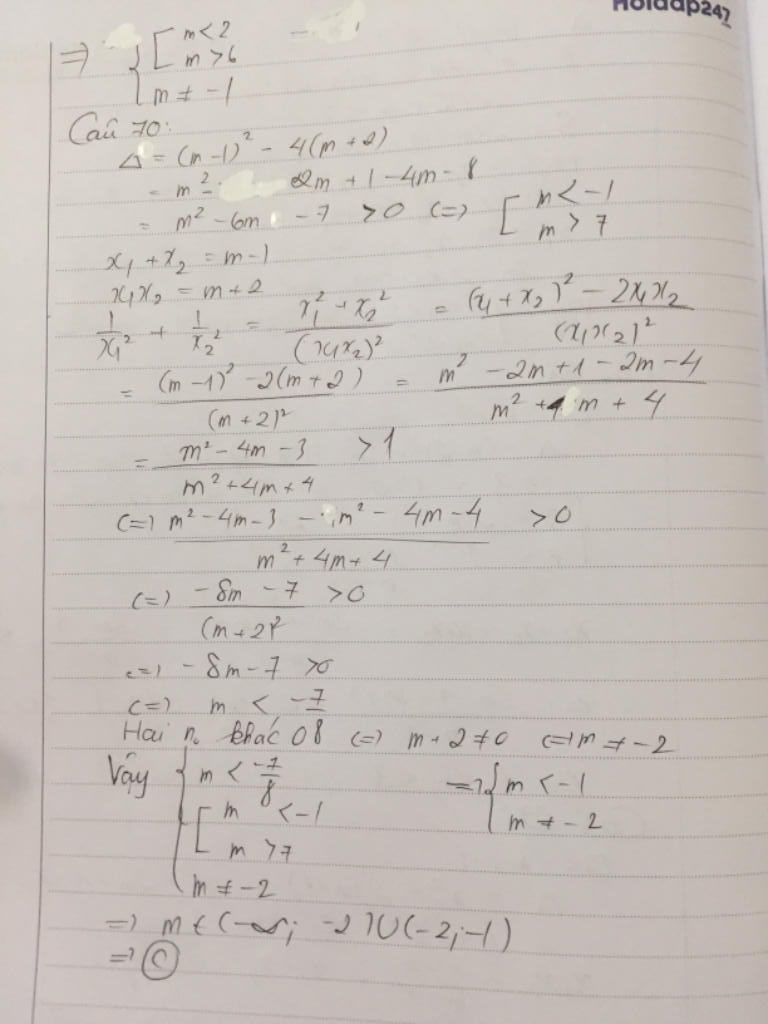 Hoidap247
=> { [ m < 2
m > 6
m ≠ -1
Câu 70:
Δ = (m-1)² - 4(m+2)
= m² - 2m + 1 - 4m - 8
= m² - 6m - 7 > 0 (=) [ m < -1
m > 7
x₁ + x₂ = m-1
x₁x₂ = m+2
1/x₁² + 1/x₂² = (x₁² + x₂²)/(x₁x₂)² = ((x₁ + x₂)² - 2x₁x₂)/(x₁x₂)²
= ((m-1)² - 2(m+2))/(m+2)² = (m² - 2m + 1 - 2m - 4)/(m² + 4m + 4)
= (m² - 4m - 3)/(m² + 4m + 4) > 1
(=) (m² - 4m - 3 - m² - 4m - 4)/(m² + 4m + 4) > 0
(=) (-8m - 7)/(m+2)² > 0
(=) -8m - 7 > 0
(=) m < -7/8
Hai n. khác 0 (=) m + 2 ≠ 0 (=) m ≠ -2
Vậy { m < -7/8 => { m < -1
[ m < -1 m ≠ -2
m > 7
m ≠ -2
=) m ∈ (-∞; -2)∪(-2; -1)
=) C